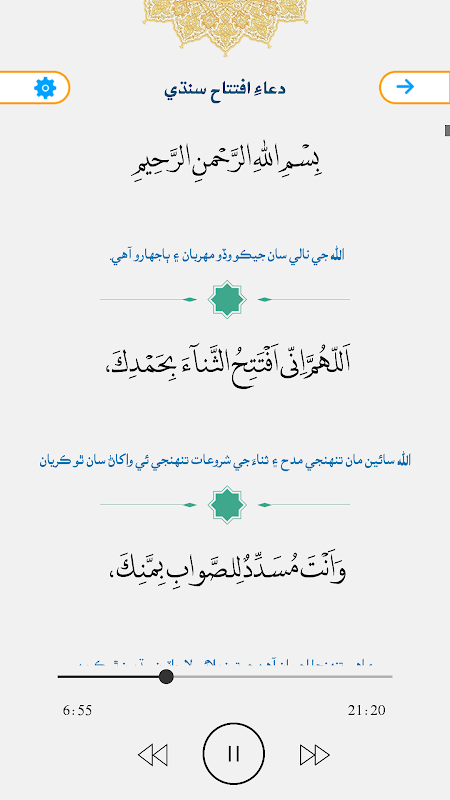 دعاءِ افتتاح سنڌي
بِسْمِ اللهِ الرَّحْمٰنِ الرَّحِيْمِ
الله جي نالي سان جيڪو وڏو مهربان ۽ ٻاجهارو آهي.
اَللّٰهُمَّ اِنِّي اَفْتَتِحُ الثَّنآءَ بِحَمْدِكَ،
الله سائين مان تنهنجي مدح ۽ ثناءَ جي شروعات تنهنجي ئي واکاڻ سان ٿو ڪريان
وَاَنْتَ مُسَدِّدٌ لِلصَّوابِ بِمَنِّكَ،
6:55
21:20